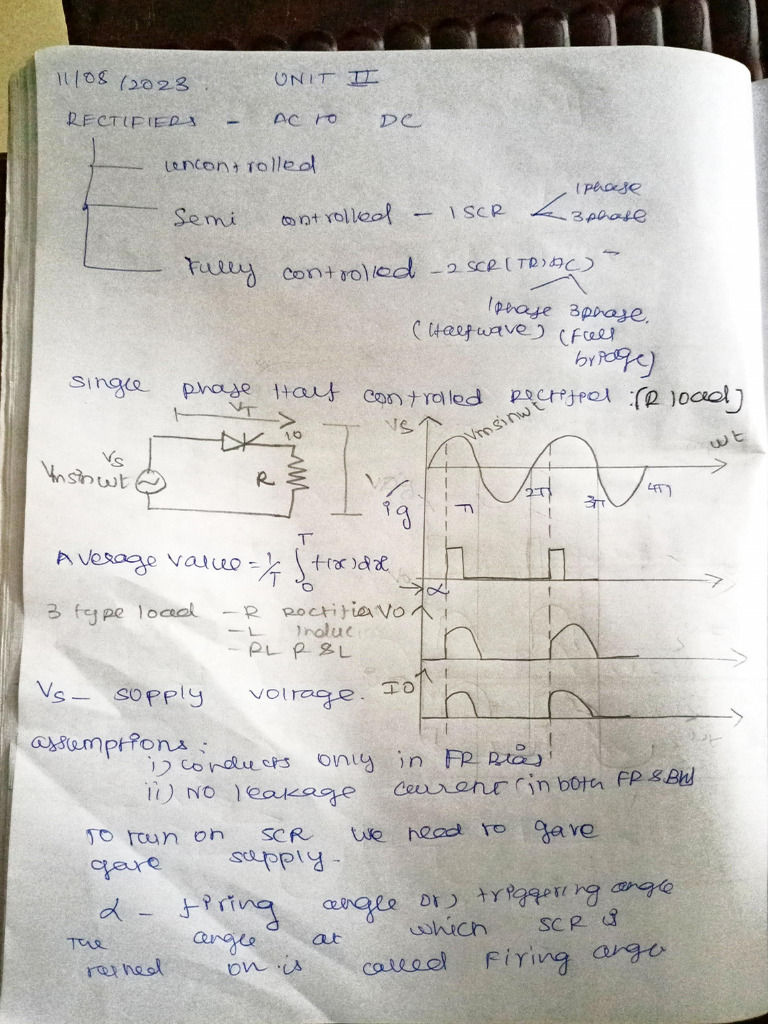 11/08/2023. UNIT II
RECTIFIERS - AC to DC
uncontrolled
Semi controlled - 1 SCR < 1 phase
3 phase
Fully controlled - 2 SCR (TRIAC)
1phase 3phase.
(Halfwave) (Full
bridge)
Single phase Half controlled Rectifier: [R load]
VT
io
Vs
Vmsinωt
R
Vs
Vmsinωt
ωt
π 2π 3π 4π
ig
α
Average value = 1/T ∫₀ᵀ f(x)dx
3 type load - R
- L Induc
- RL R & L
Vo
Io
Vs - supply voltage.
assumptions:
i) conducts only in FR Bias
ii) No leakage current (in both FR &
To turn on SCR we need to gave
gate supply.
α - firing angle or) triggering angle
The angle at which SCR is
turned on is called Firing angle